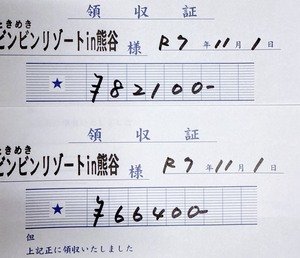 領収証
ときめき
ビンビンリゾートin熊谷 様 R7年11月1日
★ ¥82100-
領収証
ときめき
ビンビンリゾートin熊谷 様 R7年11月1日
★ ¥66400-
但
上記正に領収いたしました